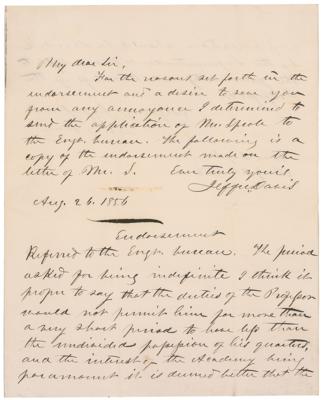 My dear Sir,
For the reasons set forth in the
endorsement and a desire to save you
from any annoyance I determined to
send the application of Mr. to
the Engr. bureau. The following is a
copy of the endorsement made on the
letter of Mr. S. truly yours
Jeffn Davis
Aug. 26. 1856
Endorsement
Referred to the Engr. bureau. The period
asked for being indefinite I think it
proper to say that the duties of the Professor
would not permit him for more than
a very short period to have less than
the undivided possession of his quarters,
and the interest of the Academy being
paramount it is deemed better that the